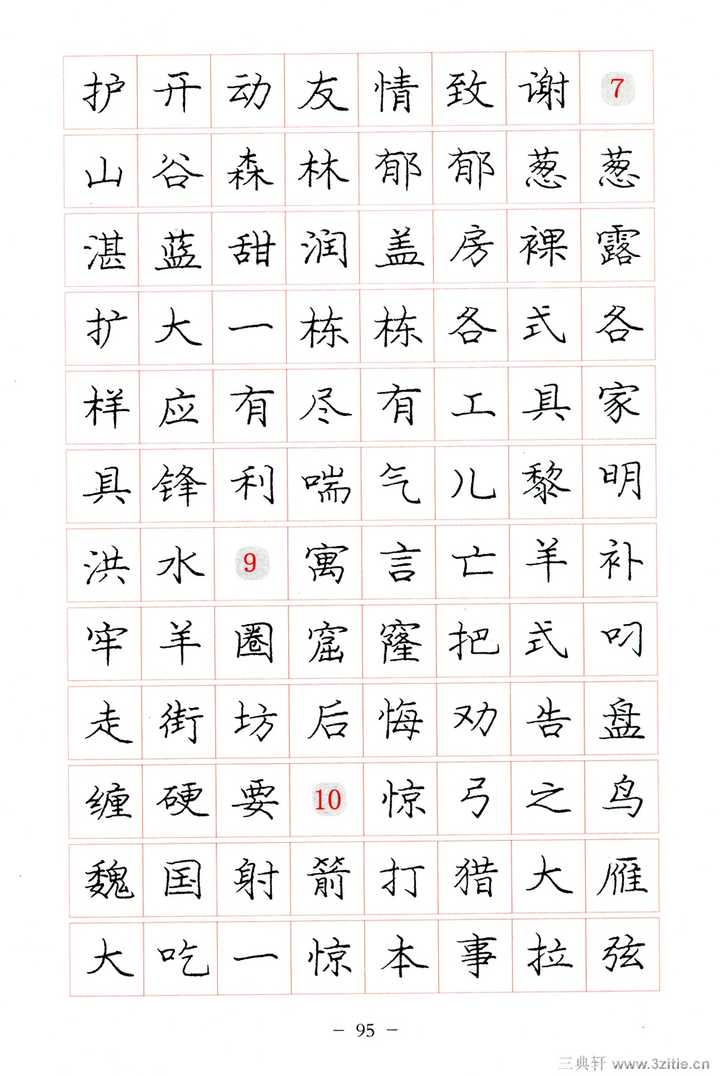 护开动友情致谢7
山谷森林郁郁葱葱
湛蓝甜润盖房裸露
扩大一栋栋各式各
样应有尽有工具家
具锋利喘气儿黎明
洪水9寓言亡羊补
牢羊圈窟窿把式叼
走街坊后悔劝告盘
缠硬要10惊弓之鸟
魏国射箭打猎大雁
大吃一惊本事拉弦
- 95 -
三典轩 www.3zitie.cn